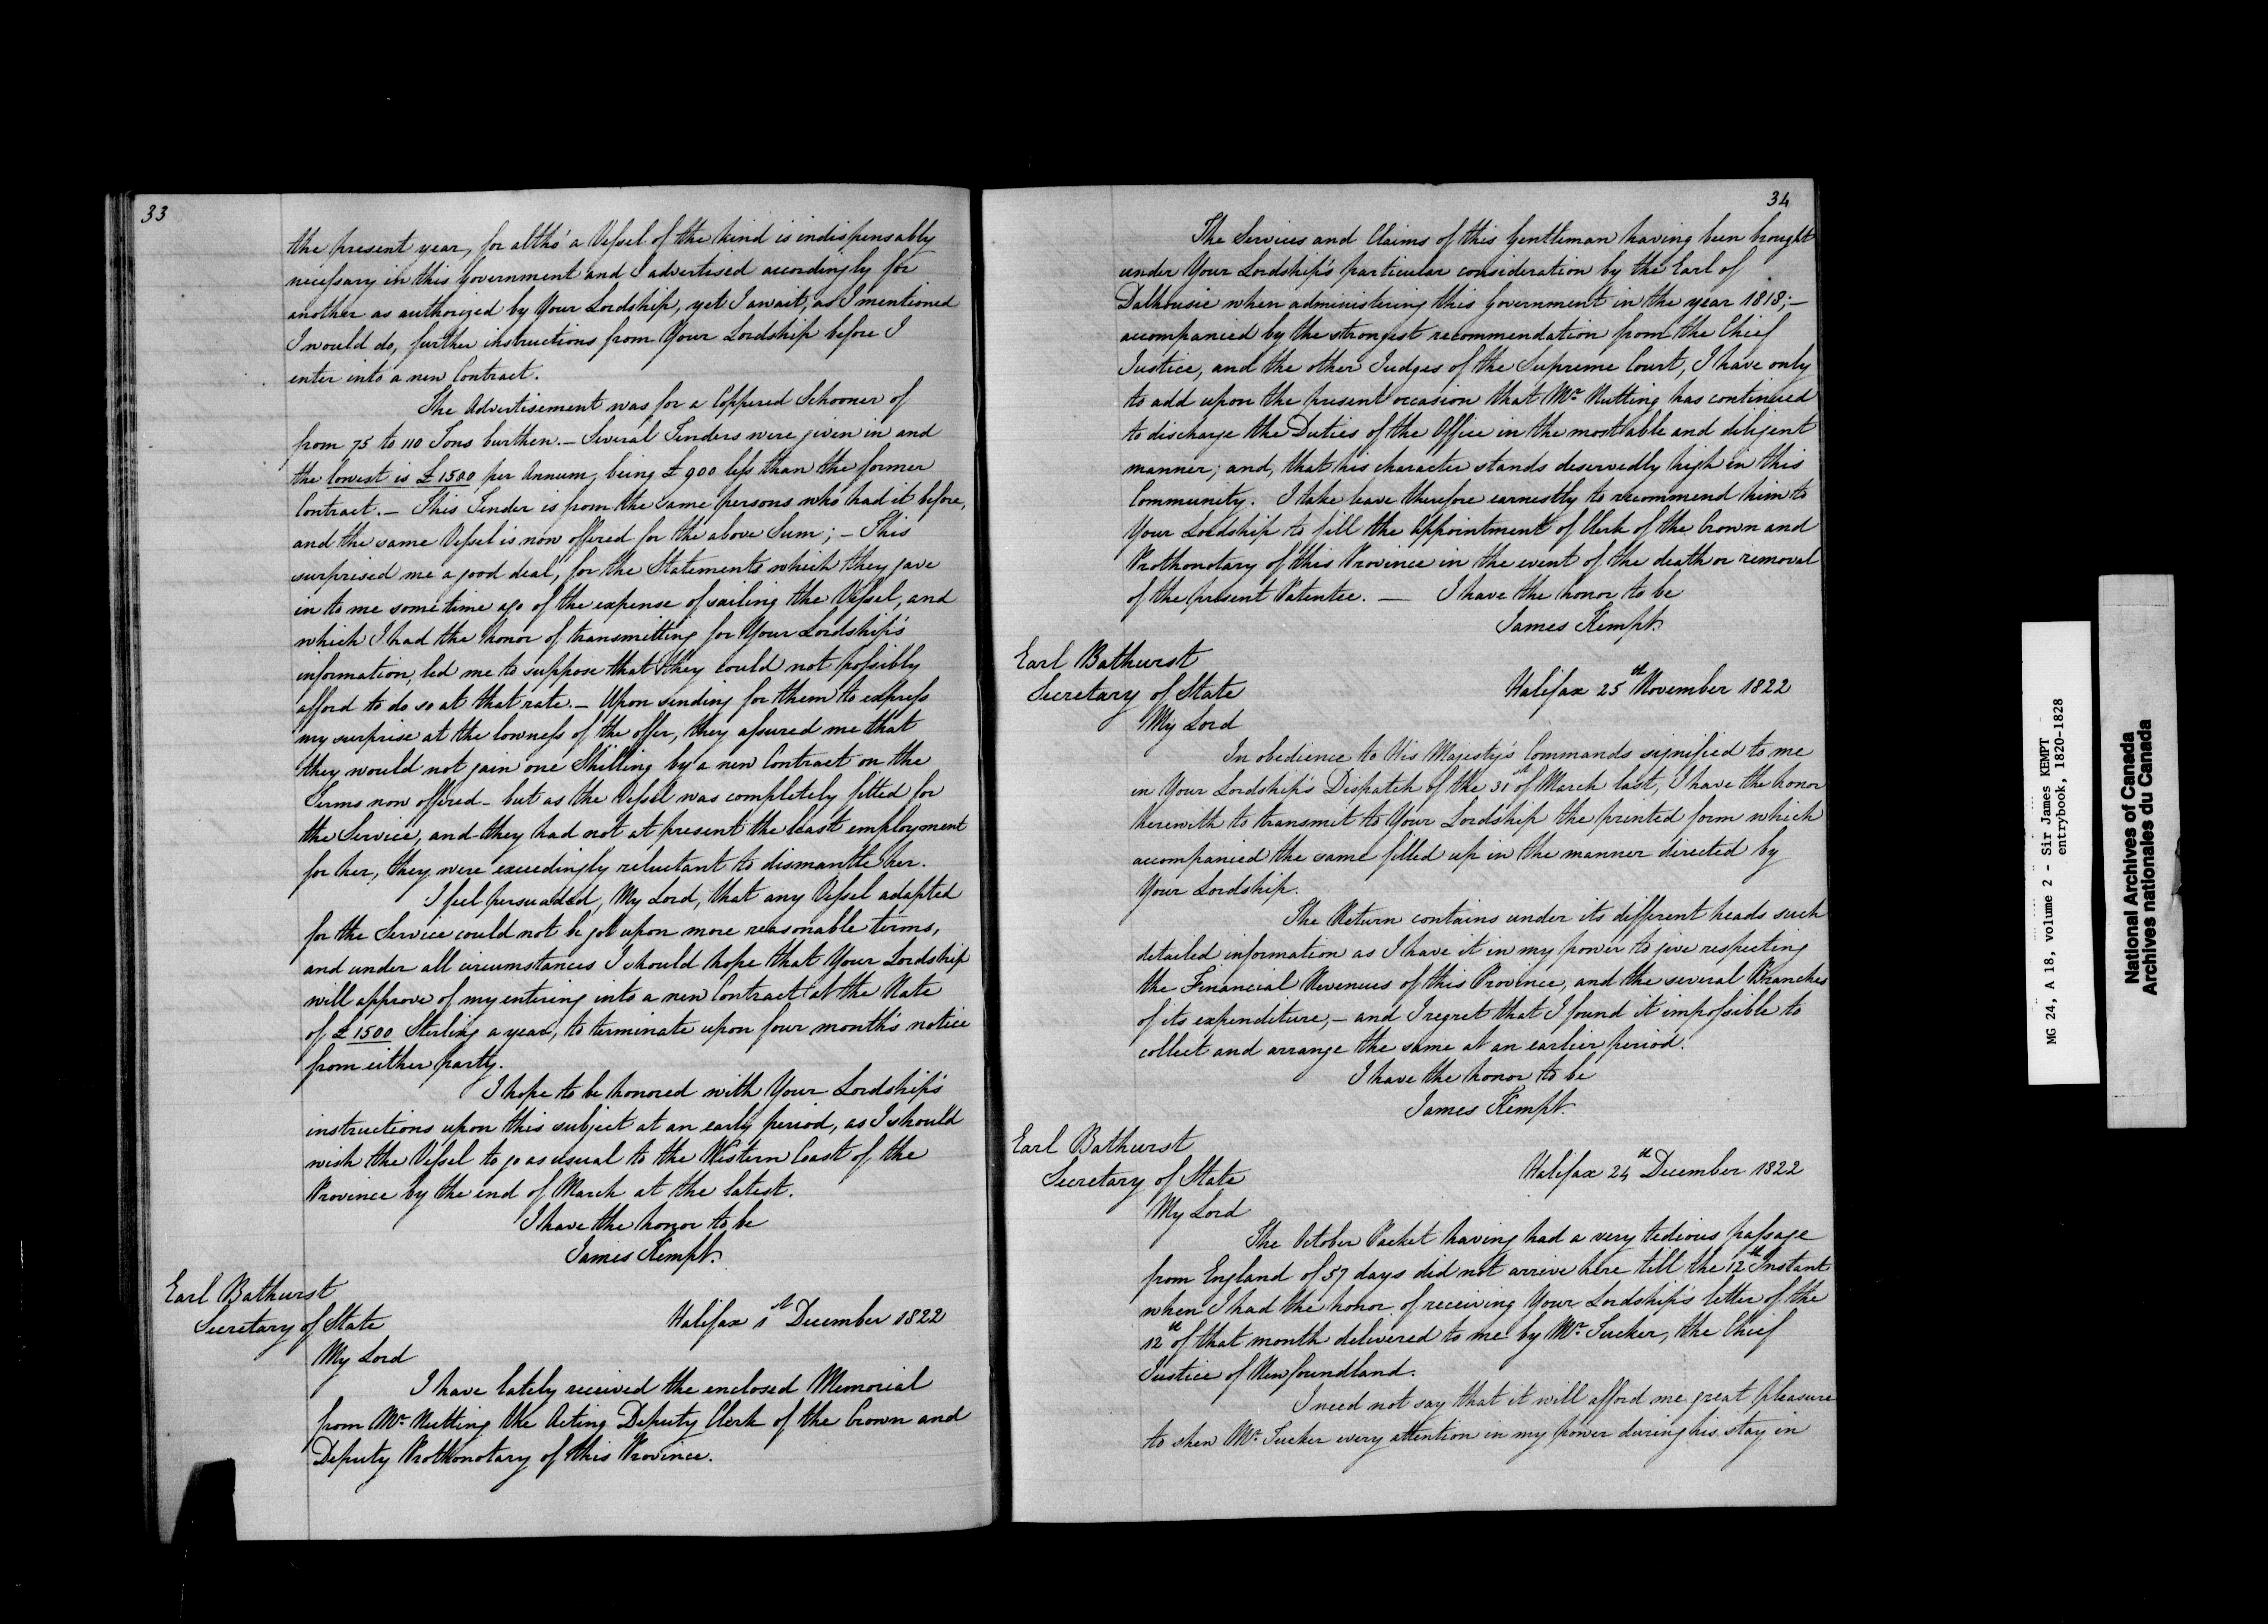 33
the present year, for altho' a Vessel of the kind is indispensably
necessary in this Government and I advertised accordingly for
another as authorized by Your Lordship, yet I await, as I mentioned
I would do, further instructions from Your Lordship before I
enter into a new Contract.
The Advertisement was for a Coppered Schooner of
from 75 to 110 Tons burthen. — Several Tenders were given in and
the lowest is £1500 per Annum, being £900 less than the former
Contract. — This Tender is from the same persons who had it before,
and the same Vessel is now offered for the above Sum; — This
surprised me a good deal, for the Statements which they gave
in to me some time ago of the expense of sailing the Vessel, and
which I had the honor of transmitting for Your Lordship's
information, led me to suppose that they could not possibly
afford to do so at that rate. — Upon sending for them to express
my surprise at the lowness of the offer, they assured me that
they would not gain one Shilling by a new Contract on the
Terms now offered — but as the Vessel was completely fitted for
the Service, and they had not at present the least employment
for her, they were exceedingly reluctant to dismantle her.
I feel persuaded, My Lord, that any Vessel adapted
for the Service could not be got upon more reasonable terms,
and under all circumstances I should hope that Your Lordship
will approve of my entering into a new Contract at the Rate
of £1500 Sterling a year, to terminate upon four month's notice
from either party.
I hope to be honored with Your Lordship's
instructions upon this subject at an early period, as I should
wish the Vessel to go as usual to the Western Coast of the
Province by the end of March at the latest.
I have the honor to be
James Kempt.
Earl Bathurst
Secretary of State
Halifax 1st December 1822
My Lord
I have lately received the enclosed Memorial
from Mr. Nutting the Acting Deputy Clerk of the Crown and
Deputy Prothonotary of this Province.
34
The Services and Claims of this Gentleman having been brought
under Your Lordship's particular consideration by the Earl of
Dalhousie when administering this Government in the year 1818; —
accompanied by the strongest recommendation from the Chief
Justice, and the other Judges of the Supreme Court, I have only
to add upon the present occasion that Mr. Nutting has continued
to discharge the Duties of the Office in the most able and diligent
manner; and, that his character stands deservedly high in this
Community. I take leave therefore earnestly to recommend him to
Your Lordship to fill the Appointment of Clerk of the Crown and
Prothonotary of this Province in the event of the death or removal
of the present Patentee. — I have the honor to be
James Kempt.
Earl Bathurst
Secretary of State
Halifax 25th November 1822
My Lord
In obedience to His Majesty's Commands signified to me
in Your Lordship's Dispatch of the 31st of March last, I have the honor
herewith to transmit to Your Lordship the printed form which
accompanied the same filled up in the manner directed by
Your Lordship.
The Return contains under its different heads such
detailed information as I have it in my power to give respecting
the Financial Revenues of this Province, and the several Branches
of its expenditure, — and I regret that I found it impossible to
collect and arrange the same at an earlier period.
I have the honor to be
James Kempt.
Earl Bathurst
Secretary of State
Halifax 24th December 1822
My Lord
The October Packet having had a very tedious passage
from England of 57 days did not arrive here till the 12th Instant
when I had the honor of receiving Your Lordship's letter of the
12th of that month delivered to me by Mr. Tucker, the Chief
Justice of Newfoundland.
I need not say that it will afford me great pleasure
to shew Mr. Tucker every attention in my power during his stay in
MG 24, A 18, volume 2 - Sir James KEMPT
entrybook, 1820-1828
National Archives of Canada
Archives nationales du Canada